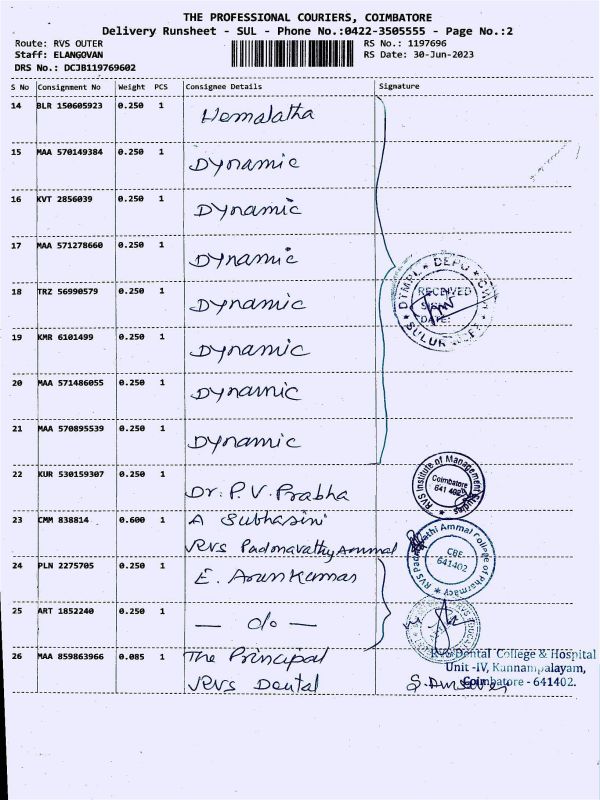 THE PROFESSIONAL COURIERS, COIMBATORE
Delivery Runsheet - SUL - Phone No.:0422-3505555 - Page No.:2
Route: RVS OUTER
Staff: ELANGOVAN
DRS No.: DCJB119769602
RS No.: 1197696
RS Date: 30-Jun-2023
S No Consignment No Weight PCS Consignee Details Signature
14 BLR 150605923 0.250 1 Hemalatha
15 MAA 570149384 0.250 1 Dynamic
16 KVT 2856039 0.250 1 Dynamic
17 MAA 571278660 0.250 1 Dynamic
18 TRZ 56990579 0.250 1 Dynamic
19 KMR 6101499 0.250 1 Dynamic
20 MAA 571486055 0.250 1 Dynamic
21 MAA 570895539 0.250 1 Dynamic
RECEIVED
SIGN
DATE:
22 KUR 530159307 0.250 1 Dr. P. V. Prabha
RVS Institute of Management Studies
Coimbatore
641 402
23 CMM 838814 0.600 1 A Subhasini
RVS Padmavathy Ammal
Ammal College of Pharmacy
CBE
641402
24 PLN 2275705 0.250 1 E. Arun Kumar
25 ART 1852240 0.250 1 — do —
26 MAA 859863966 0.085 1 The Principal
RVS Dental
RVS Dental College & Hospital
Unit -IV, Kannampalayam,
Coimbatore - 641402.